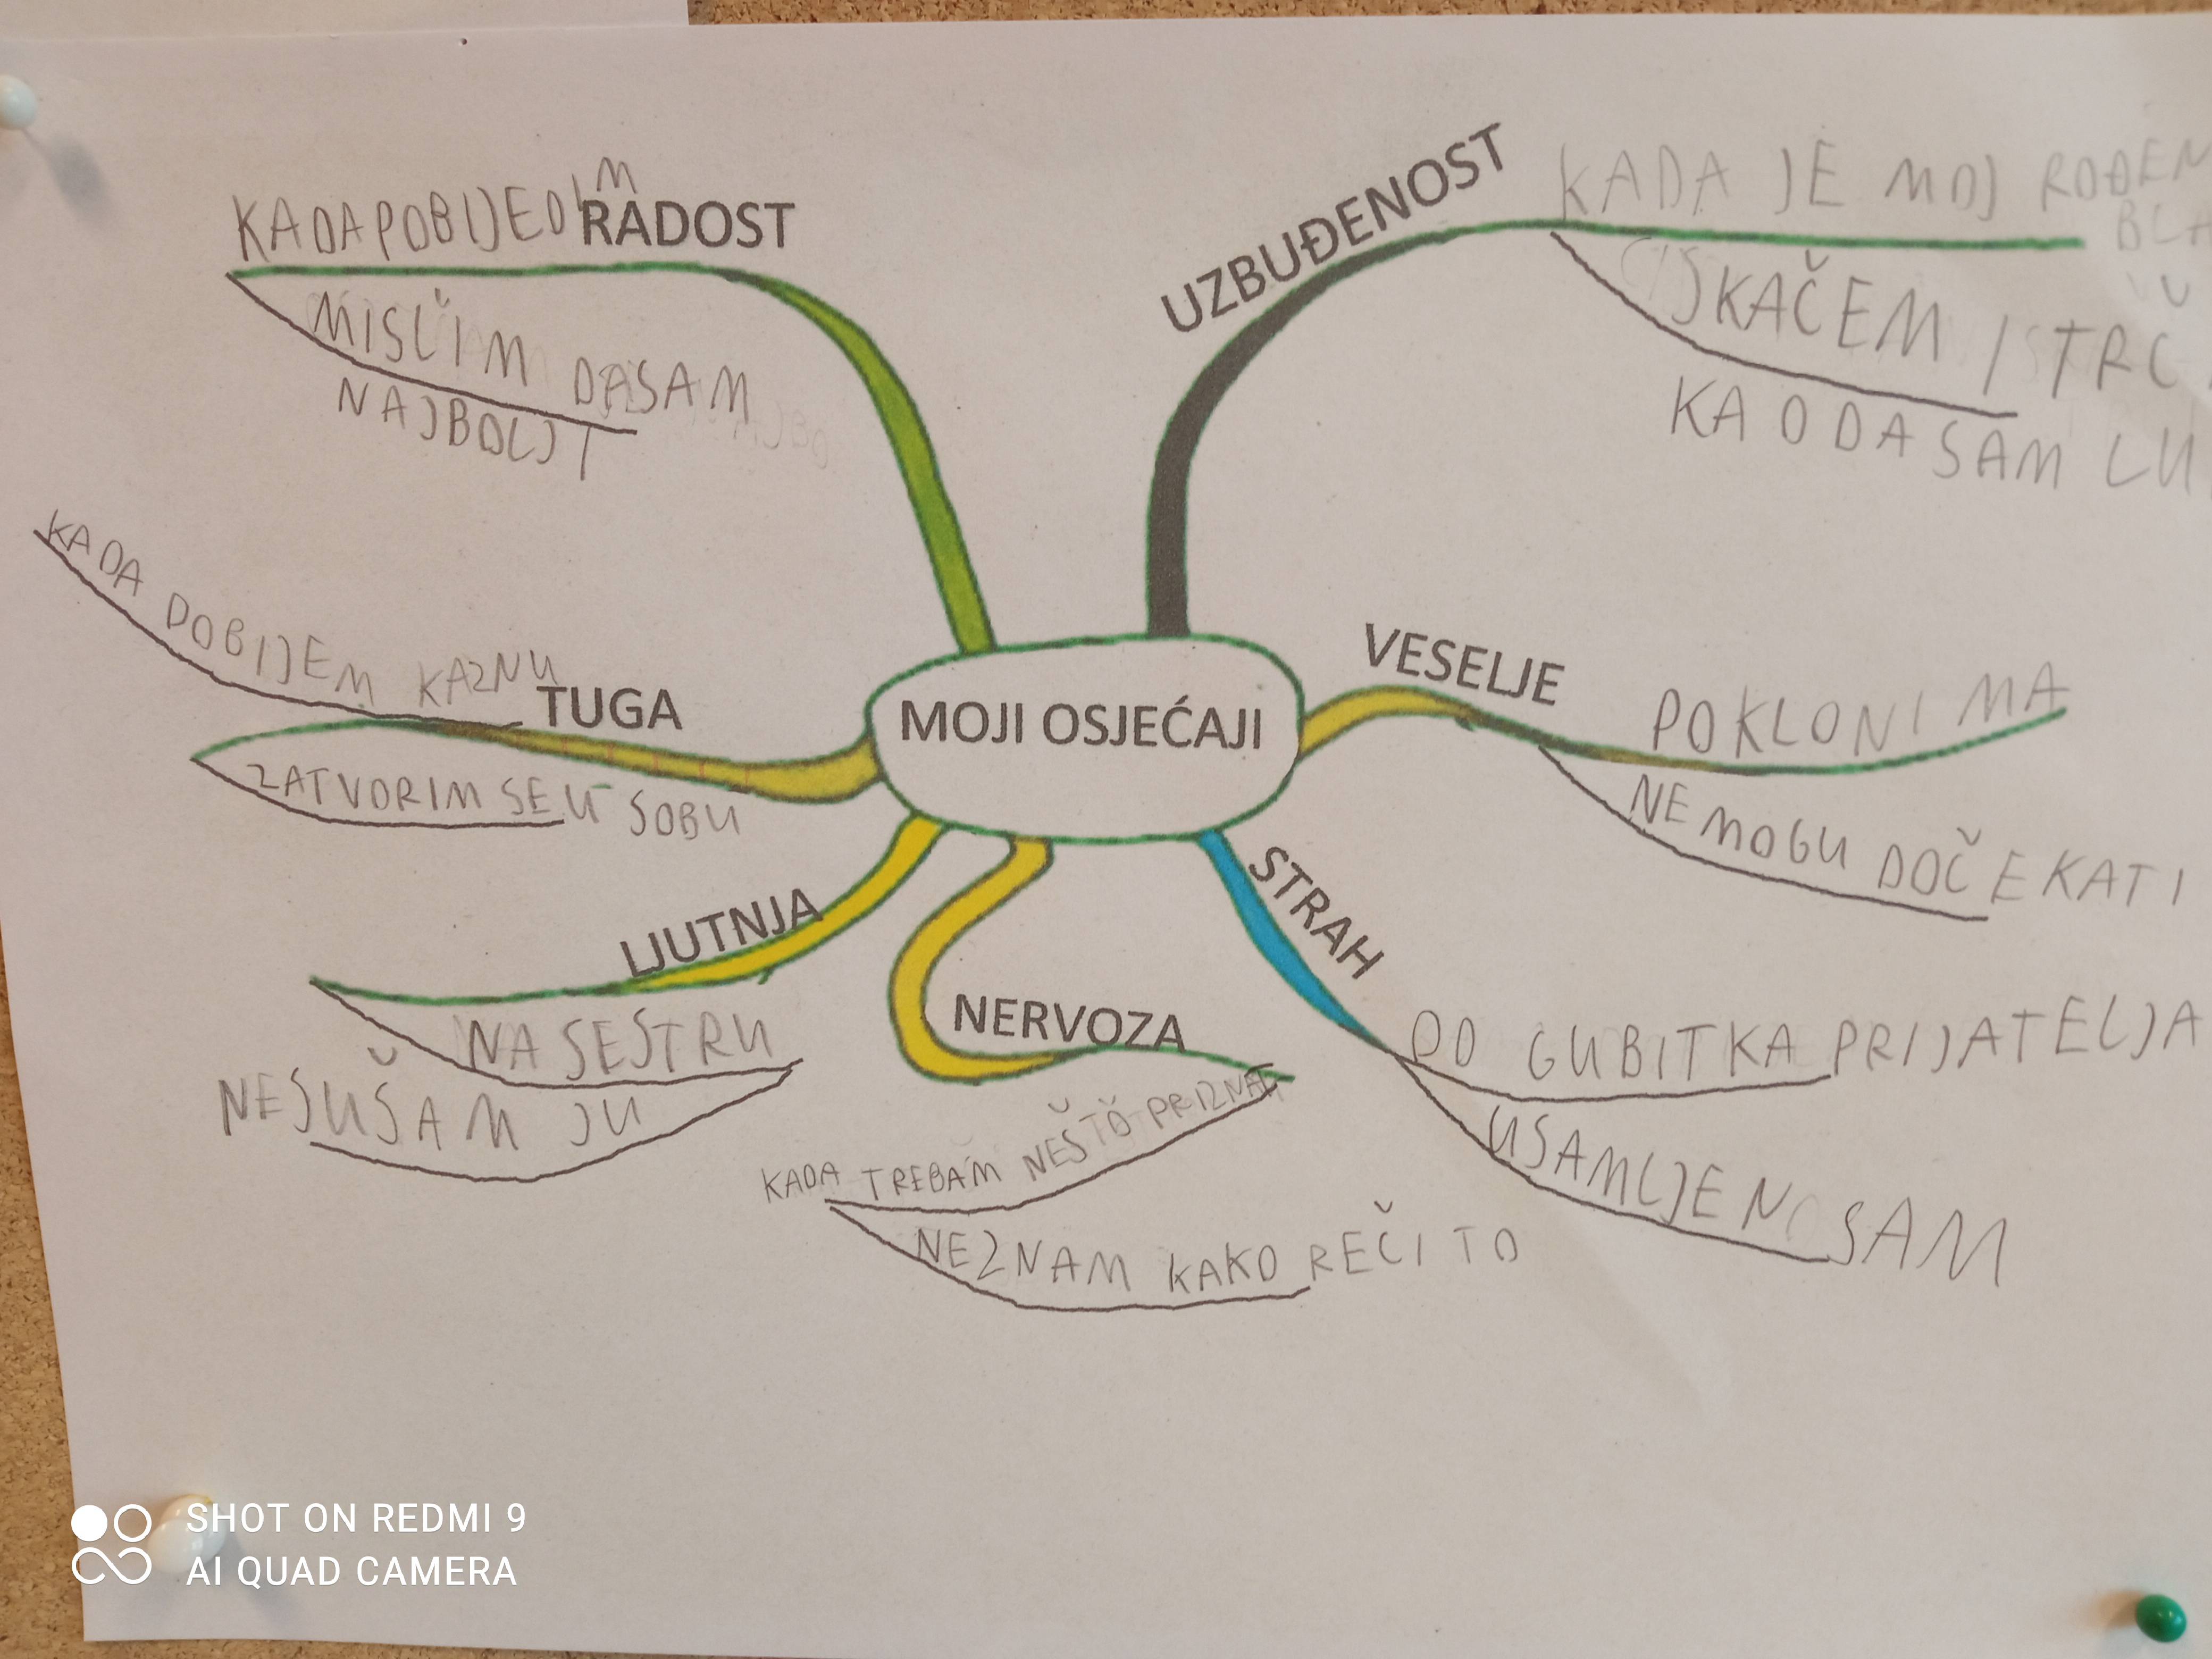 KADA POBIJEDIM
RADOST
MISLIM DA SAM
NAJBOLJI
UZBUĐENOST
KADA JE MOJ ROĐEN
BLA
SKAČEM I TRČ
KAO DA SAM LU
KADA DOBIJEM KAZNU
TUGA
ZATVORIM SE U SOBU
MOJI OSJEĆAJI
VESELJE
POKLONIMA
NE MOGU DOČEKATI
LJUTNJA
NA SESTRU
NESUŠAM JU
NERVOZA
KADA TREBAM NEŠTO PRIZNAT
NEZNAM KAKO REČI TO
STRAH
OD GUBITKA PRIJATELJA
USAMLJEN SAM
SHOT ON REDMI 9
AI QUAD CAMERA